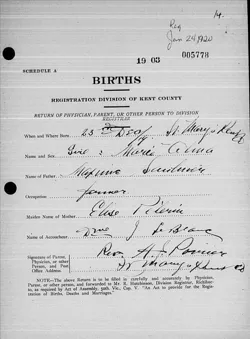 14.
Reg
Jan 24 1920
19 03
005778
SCHEDULE A
BIRTHS
REGISTRATION DIVISION OF KENT COUNTY
RETURN OF PHYSICIAN, PARENT, OR OTHER PERSON TO DIVISION
REGISTRAR
When and Where Born 23 Dec/ St. Mary's Kent Co
Name and Sex Girl : Marie Anna
Name of Father Maxime
Occupation farmer
Maiden Name of Mother Elise
Name of Accoucheur Mrs J LeBlanc
Signature of Parent,
Physician, or other
Person and Post
Office Address
Rev.
St Mary's Kent Co
NOTE—The above Return is to be filled in carefully and accurately by Physician, Parent,
or other person, and forwarded to Mr. R. Hutchinson, Division Registrar, Richibuc-
to, as required by Act of Assembly, 50th. Vic., Cap. V. "An Act to provide for the Regis-
tration of Births, Deaths and Marriages."